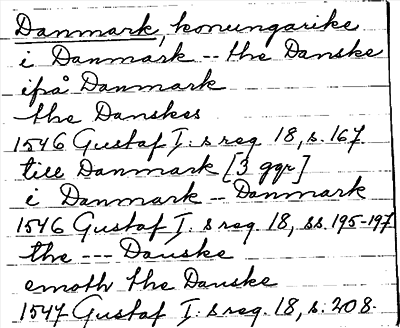 Danmark, konungarike
i Danmark -- the Danske
ifrå Danmark
the Danskes
1546 Gustaf I:s reg. 18, s. 167.
till Danmark [3 ggr]
i Danmark -- Danmark
1546 Gustaf I:s reg. 18, ss. 195-197
the --- Danske
emoth the Danske
1547 Gustaf I:s reg. 18, s. 208.